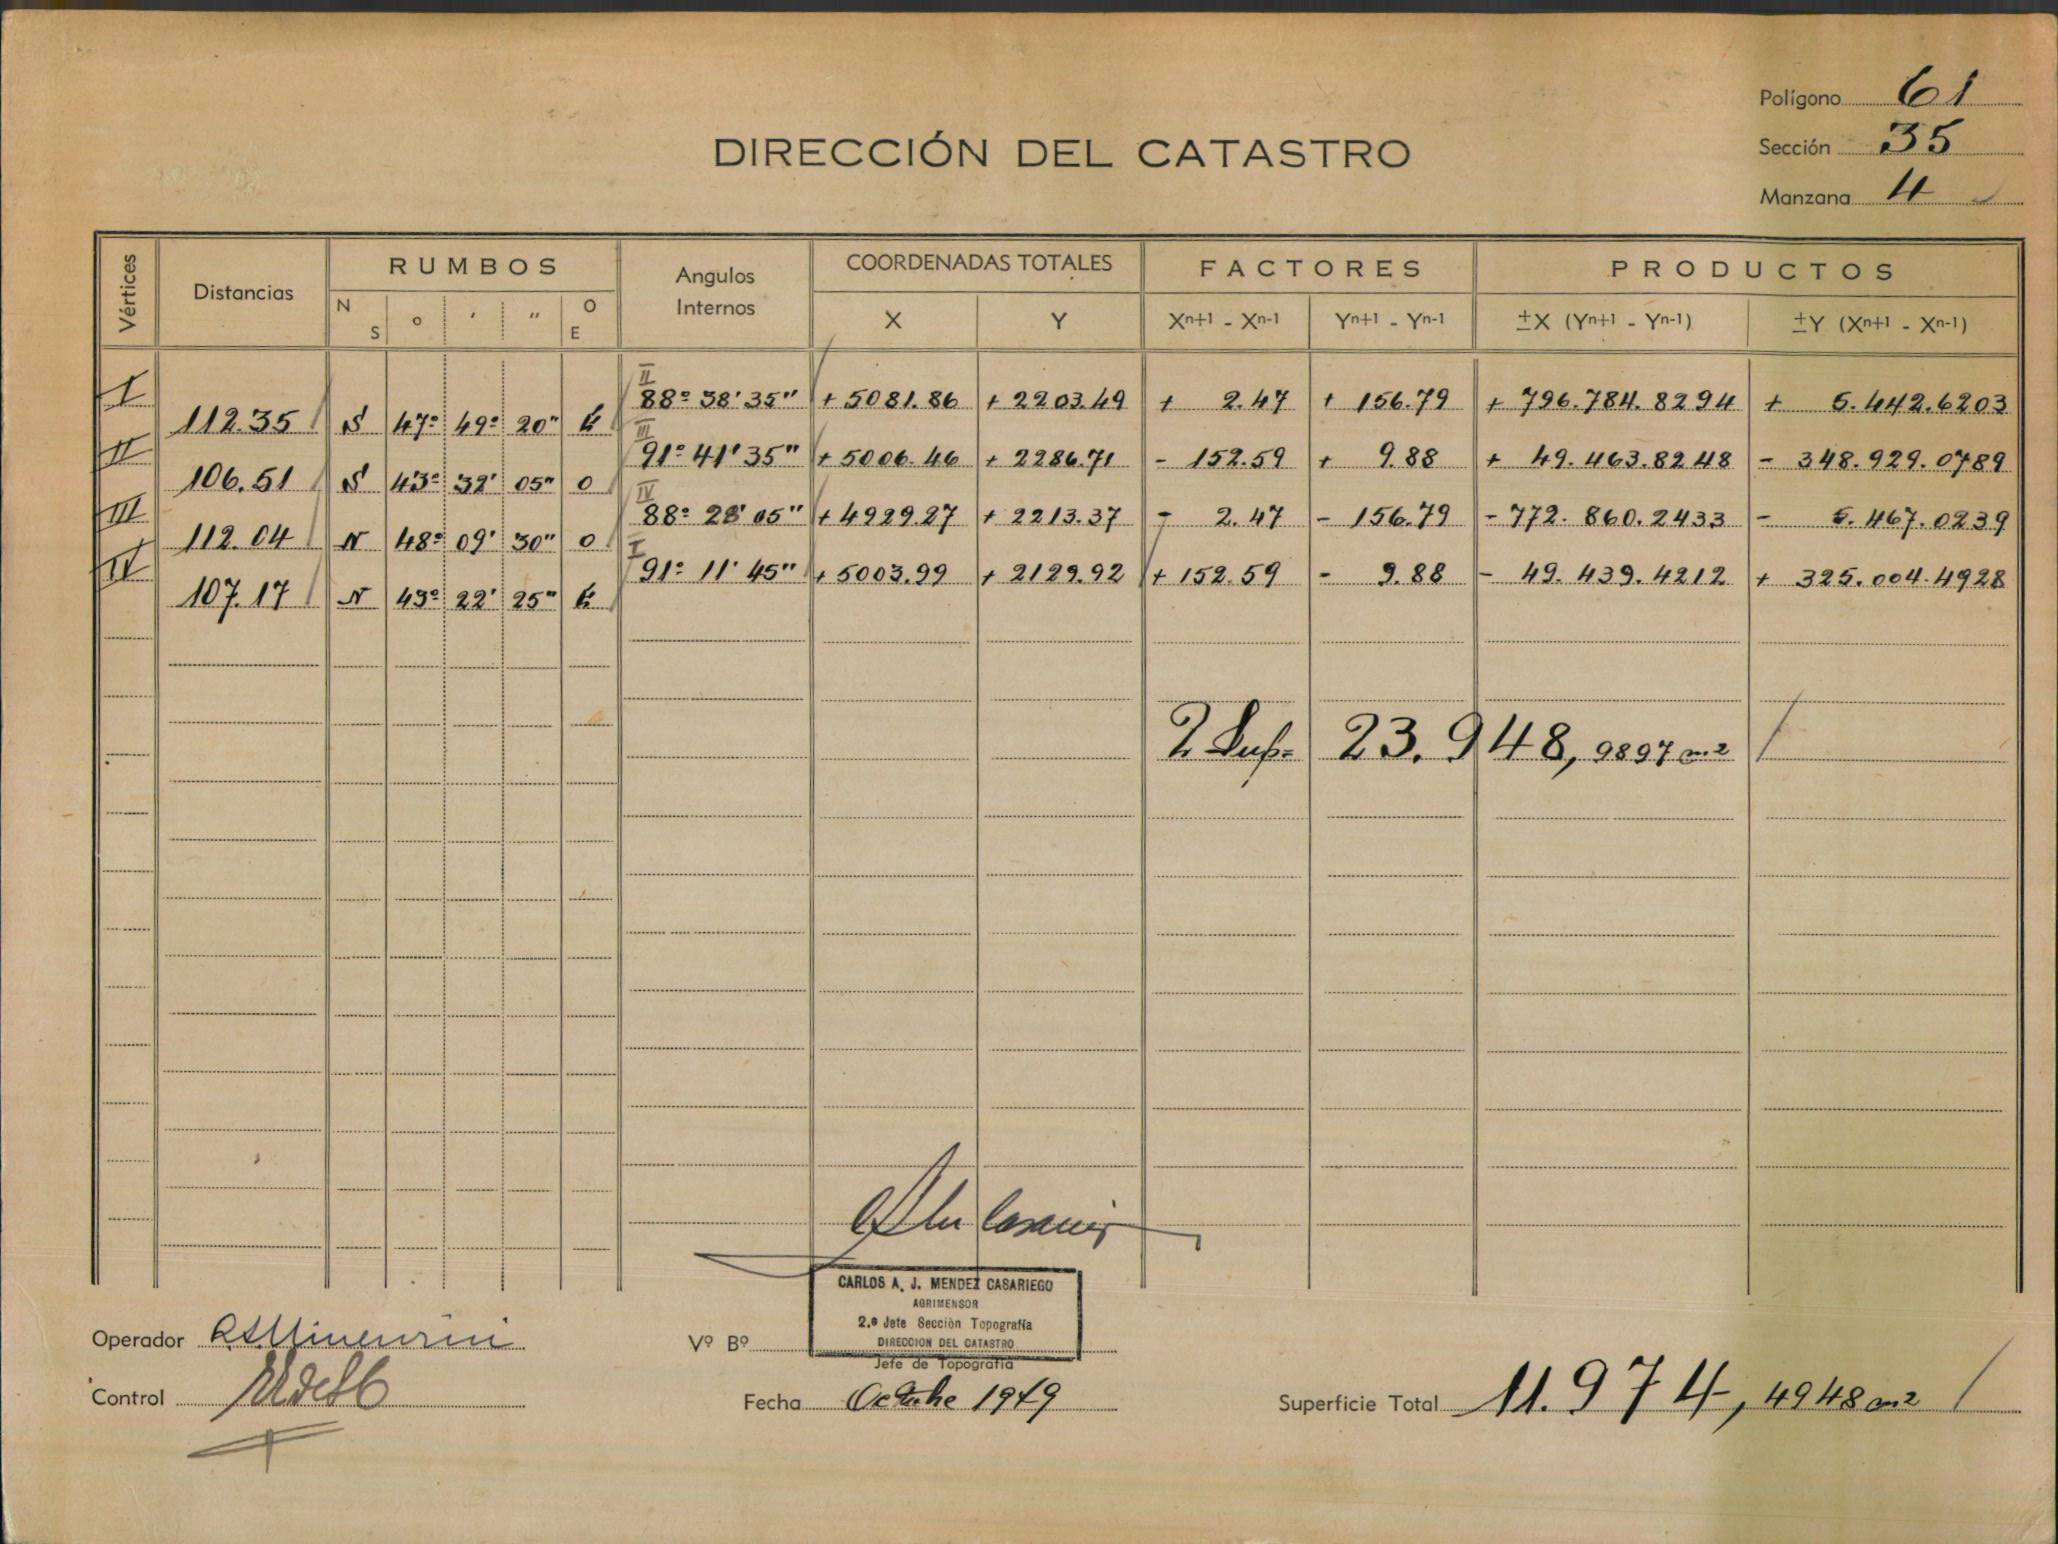 Polígono 61
Sección 35
DIRECCIÓN DEL CATASTRO
Manzana 4
Vértices Distancias RUMBOS N S ° ' " O E Angulos Internos COORDENADAS TOTALES X Y FACTORES Xn+1 - Xn-1 Yn+1 - Yn-1 PRODUCTOS ±X (Yn+1 - Yn-1) ±Y (Xn+1 - Xn-1)
I II 88° 38' 35" + 5081.86 + 2203.49 + 2.47 + 156.79 + 796.784.8294 + 5.442.6203
112.35 S 47° 49° 20" E
II III 91° 41' 35" + 5006.46 + 2286.71 - 152.59 + 9.88 + 49.463.8248 - 348.929.0789
106.51 S 43° 32' 05" O
III IV 88° 28' 05" + 4929.27 + 2213.37 - 2.47 - 156.79 - 772.860.2433 - 5.467.0239
112.04 N 48° 09' 30" O
IV I 91° 11' 45" + 5003.99 + 2129.92 + 152.59 - 9.88 - 49.439.4212 + 325.004.4928
107.17 N 43° 22' 25" E
2 Sup. 23.948, 9897 m2
CARLOS A. J. MENDEZ CASARIEGO
AGRIMENSOR
2.º Jefe Sección Topografía
DIRECCION DEL CATASTRO
Operador
Vº Bº
Jefe de Topografía
Control
Fecha Octubre 1949
Superficie Total 11.974, 4948 m2